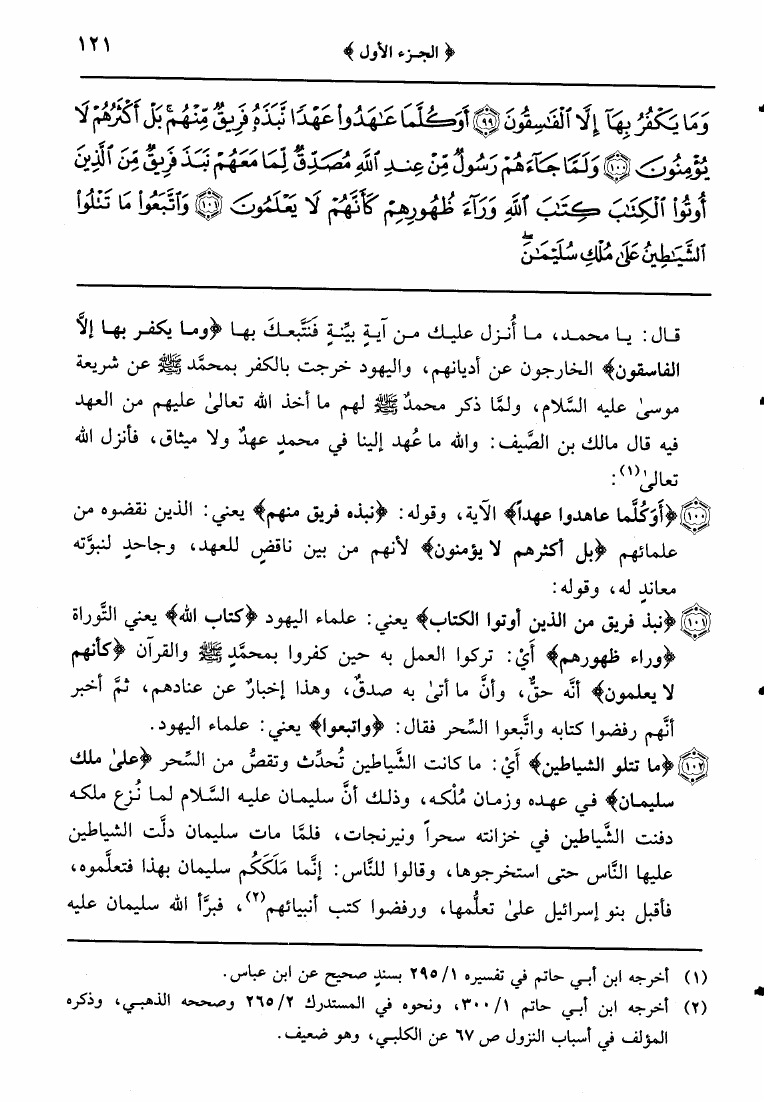 ﴿ الجزء الأول ﴾
١٢١
وَمَا يَكْفُرُ بِهَآ إِلَّا ٱلْفَـٰسِقُونَ ۝٩٩ أَوَكُلَّمَا عَـٰهَدُوا۟ عَهْدًا نَّبَذَهُۥ فَرِيقٌ مِّنْهُم ۚ بَلْ أَكْثَرُهُمْ لَا
يُؤْمِنُونَ ۝١٠٠ وَلَمَّا جَآءَهُمْ رَسُولٌ مِّنْ عِندِ ٱللَّهِ مُصَدِّقٌ لِّمَا مَعَهُمْ نَبَذَ فَرِيقٌ مِّنَ ٱلَّذِينَ
أُوتُوا۟ ٱلْكِتَـٰبَ كِتَـٰبَ ٱللَّهِ وَرَآءَ ظُهُورِهِمْ كَأَنَّهُمْ لَا يَعْلَمُونَ ۝١٠١ وَٱتَّبَعُوا۟ مَا تَتْلُوا۟
ٱلشَّيَـٰطِينُ عَلَىٰ مُلْكِ سُلَيْمَـٰنَ ۖ
قال: يا محمد، ما أُنزل عليك من آيةٍ بيِّنةٍ فَنَتَّبعكَ بها ﴿وما يكفر بها إلَّا
الفاسقون﴾ الخارجون عن أديانهم، واليهود خرجت بالكفر بمحمَّد ﷺ عن شريعة
موسىٰ عليه السَّلام، ولمَّا ذكر محمدٌ ﷺ لهم ما أخذ الله تعالىٰ عليهم من العهد
فيه قال مالك بن الصَّيف: والله ما عُهد إلينا في محمدٍ عهدٌ ولا ميثاق، فأنزل الله
تعالىٰ(١):
۝١٠٠ ﴿أَوَكُلَّما عاهدوا عهداً﴾ الآية، وقوله: ﴿نبذه فريق منهم﴾ يعني: الذين نقضوه من
علمائهم ﴿بل أكثرهم لا يؤمنون﴾ لأنهم من بين ناقضٍ للعهد، وجاحدٍ لنبوَّته
معاندٍ له، وقوله:
۝١٠١ ﴿نبذ فريق من الذين أوتوا الكتاب﴾ يعني: علماء اليهود ﴿كتاب الله﴾ يعني التَّوراة
﴿وراء ظهورهم﴾ أَيْ: تركوا العمل به حين كفروا بمحمَّدٍ ﷺ والقرآن ﴿كأنهم
لا يعلمون﴾ أنَّه حقٌّ، وأنَّ ما أتىٰ به صدقٌ، وهذا إخبارٌ عن عنادهم، ثمَّ أخبر
أنَّهم رفضوا كتابه واتَّبعوا السِّحر فقال: ﴿واتبعوا﴾ يعني: علماء اليهود.
۝١٠٢ ﴿ما تتلو الشياطين﴾ أَيْ: ما كانت الشَّياطين تُحدِّث وتقصُّ من السِّحر ﴿علىٰ ملك
سليمان﴾ في عهده وزمان مُلْكه، وذلك أنَّ سليمان عليه السَّلام لما نُزع ملكه
دفنت الشَّياطين في خزانته سحراً ونيرنجات، فلمَّا مات سليمان دلَّت الشياطين
عليها النَّاس حتى استخرجوها، وقالوا للنَّاس: إنَّما مَلَكَكُم سليمان بهذا فتعلَّموه،
فأقبل بنو إسرائيل علىٰ تعلُّمها، ورفضوا كتب أنبيائهم(٢)، فبرَّأ الله سليمان عليه
(١) أخرجه ابن أبي حاتم في تفسيره ٢٩٥/١ بسندٍ صحيح عن ابن عباس.
(٢) أخرجه ابن أبي حاتم ٣٠٠/١، ونحوه في المستدرك ٢٦٥/٢ وصححه الذهبي، وذكره
المؤلف في أسباب النزول ص ٦٧ عن الكلبي، وهو ضعيف.